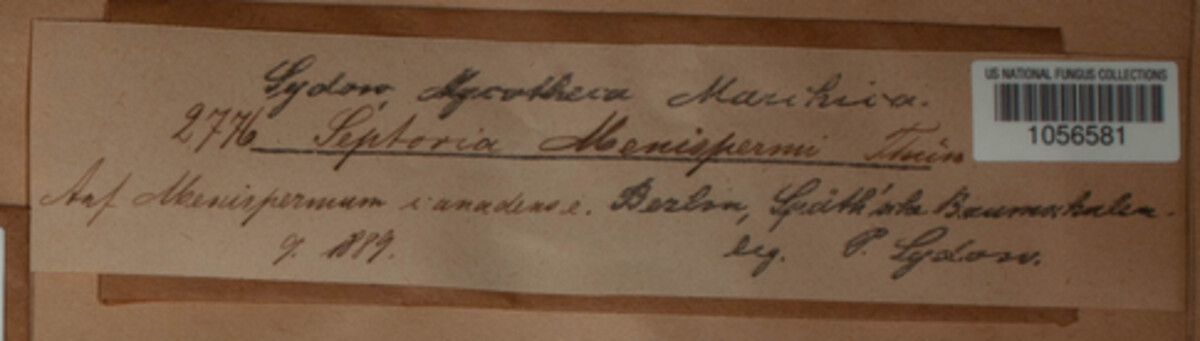 Sydow, Mycotheca Marchica.
2776 Septoria Menispermi Thüm
Auf Menispermum canadense. Berlin, Späth'sche Baumschulen.
9. 1889. leg. P. Sydow.
US NATIONAL FUNGUS COLLECTIONS
1056581